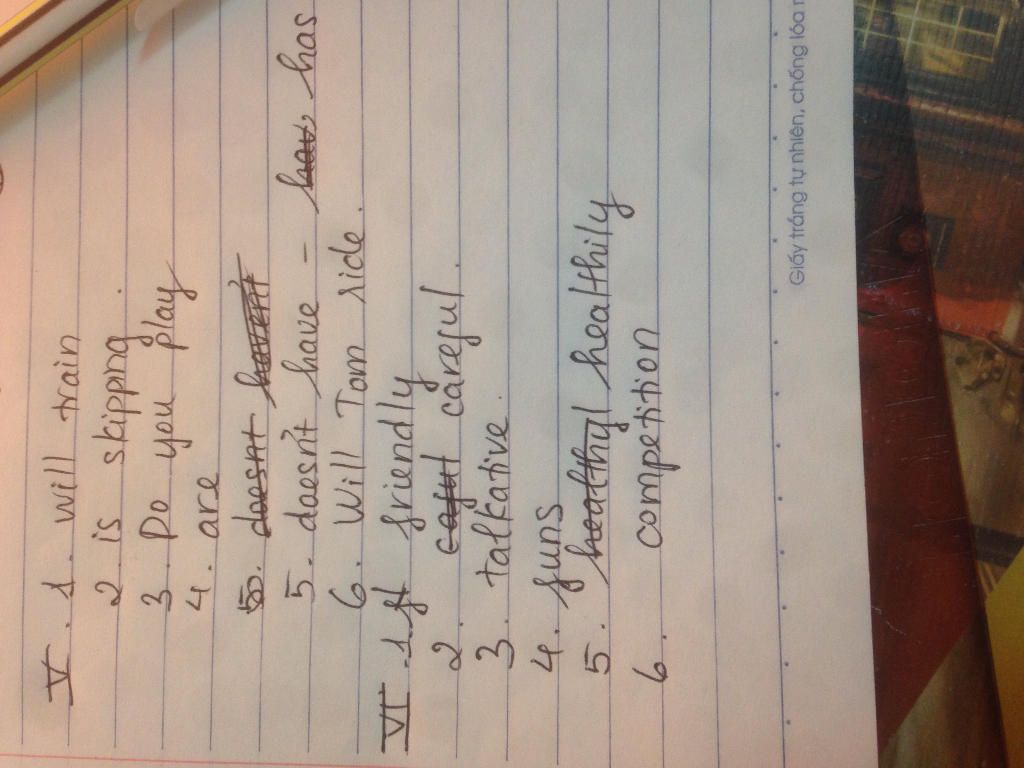 V. 1. will train
2. is skippng.
3. Do you play
4. are
5. doesn't haven't
5. doesn't have - hav has
6. Will Tom side.
VI. 1. ft friendly
2. caful careful.
3. talkative.
4. funs
5. healthyl healthily
6. competition
Giấy trắng tự nhiên, chống lóa